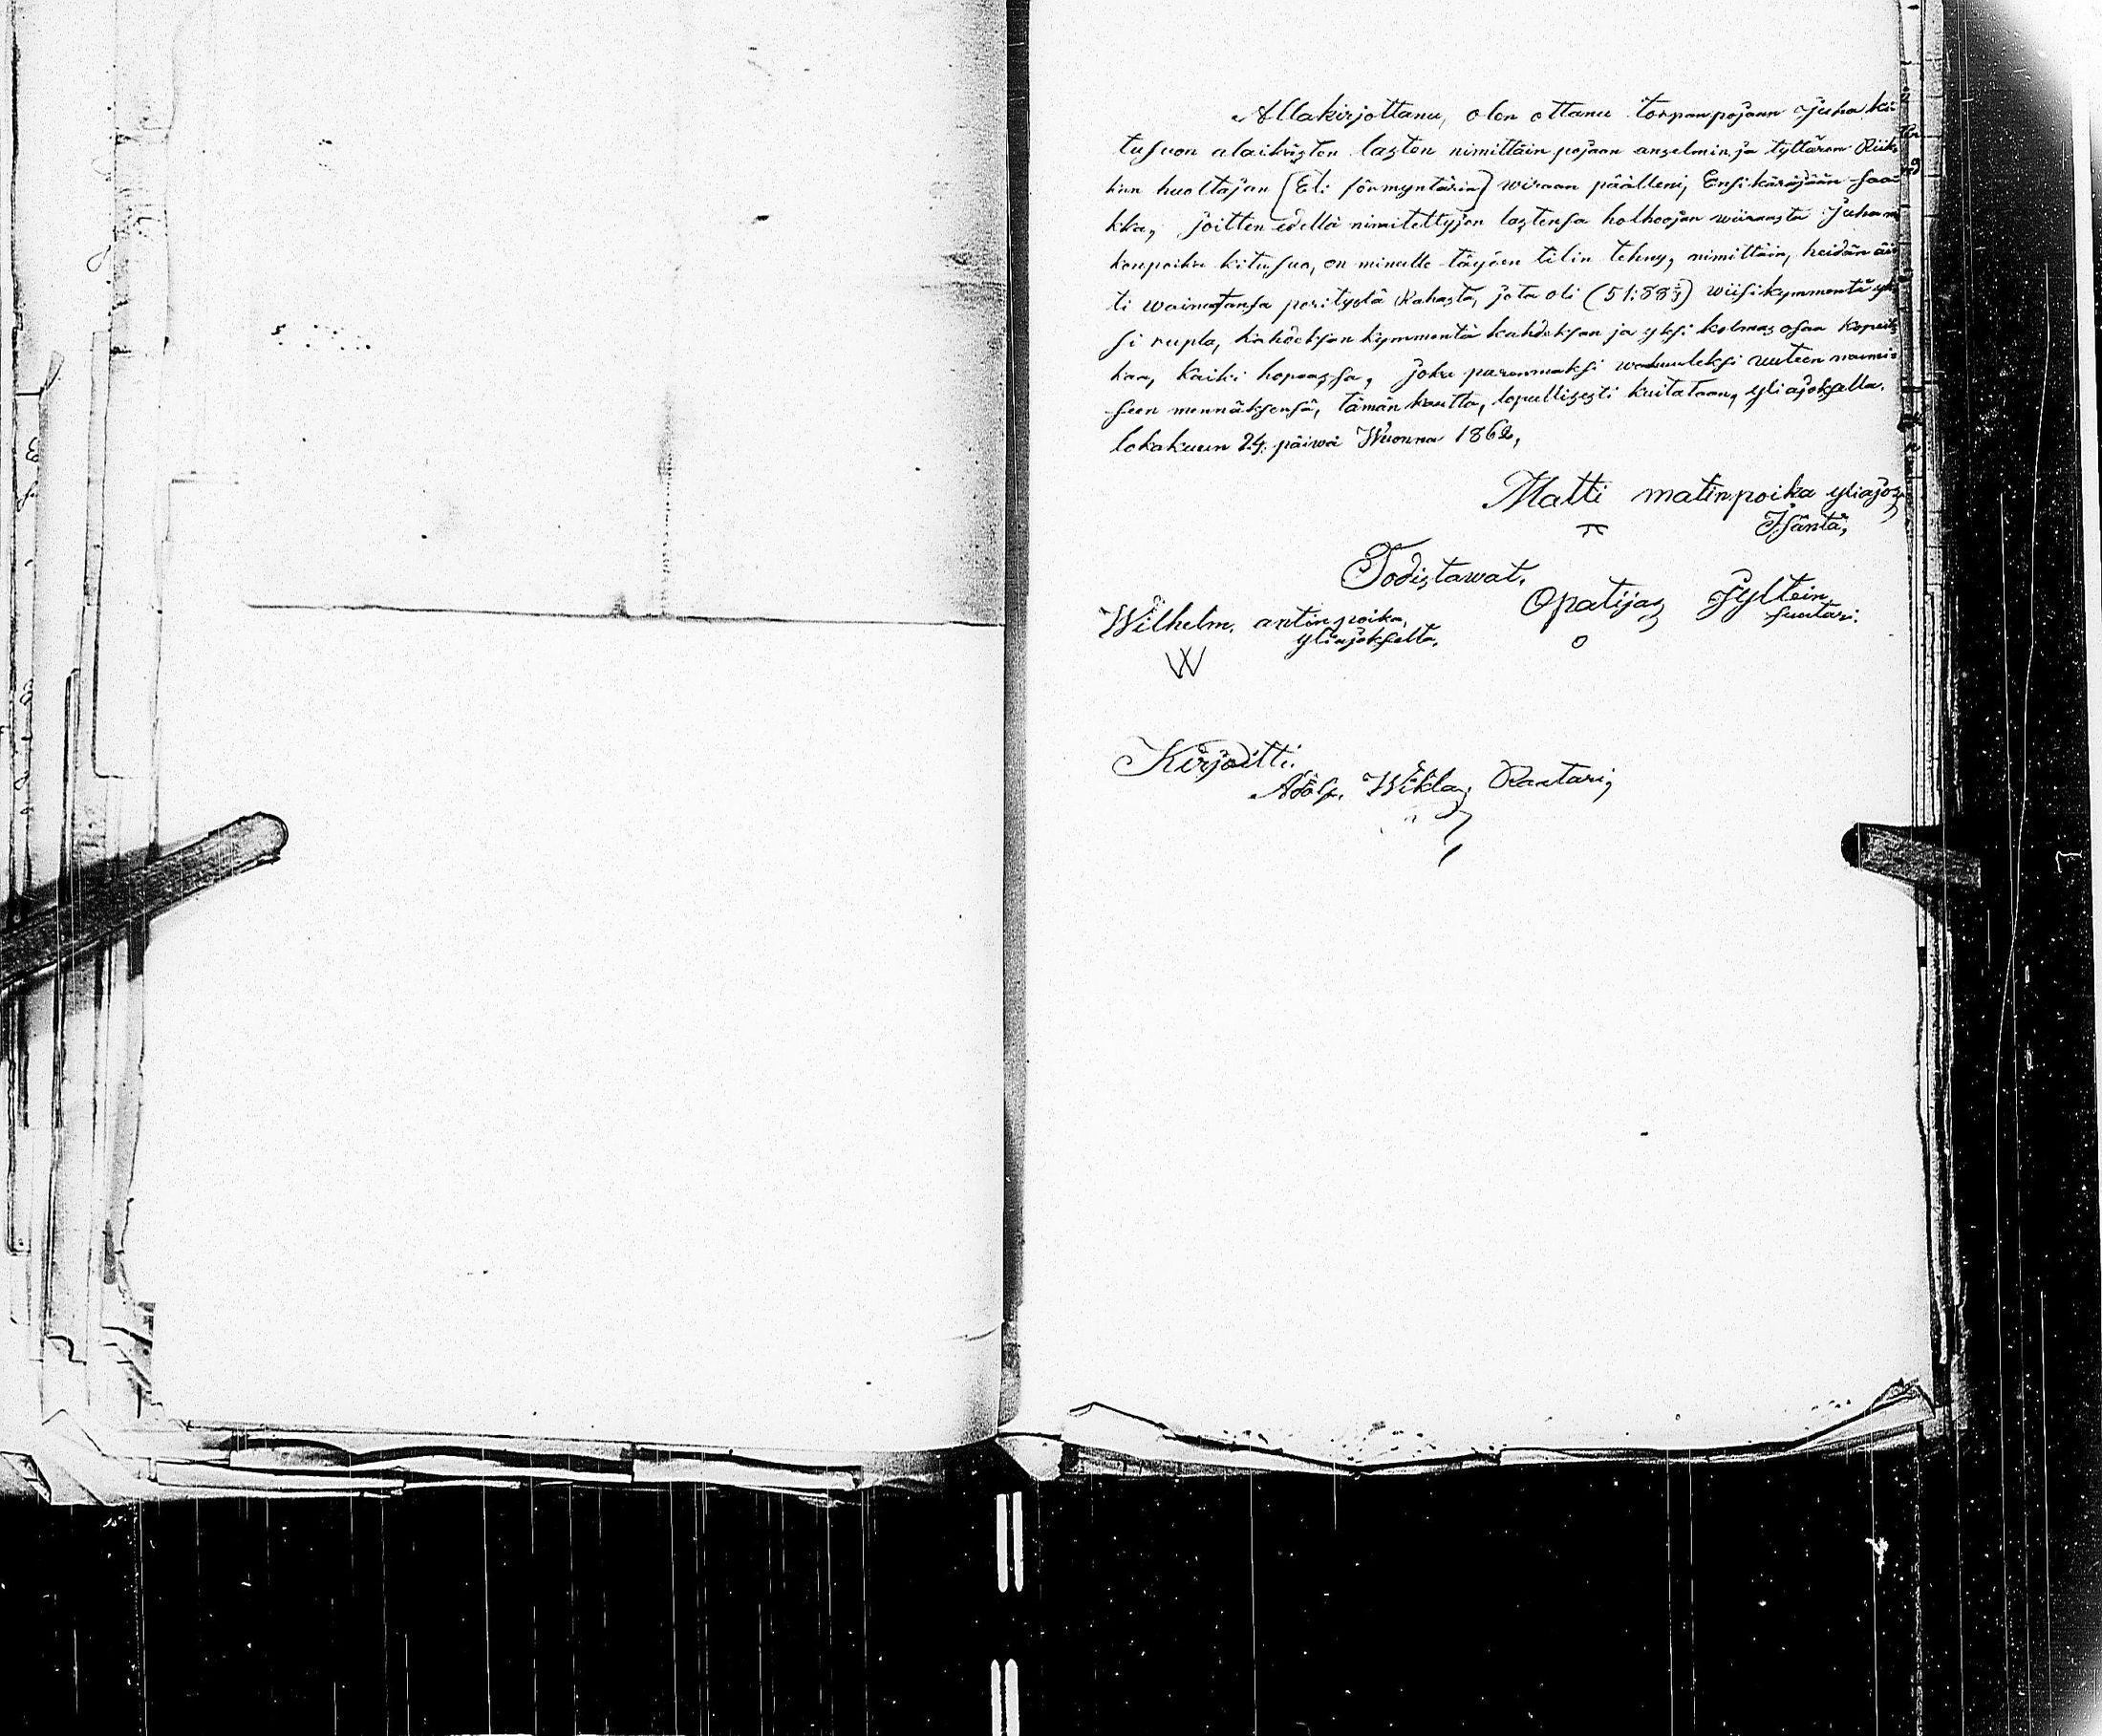 Allakirjottanu, olen ottanu torpanpojaan Juha ki-
tusuon alaikäisten lasten nimittäin pojaan anselmin, ja tyttären Riik-
kan huoltajan [Eli förmyntärin] wiraan päälleni, Ensikäräjään saa-
kka, joitten edellä nimitettyjen lastensa holhoojan wiirasta Juha m
kanpoika kitusuo, on minulle täyden tilin tehny, nimittäin, heidän äi-
ti wainajansa peritystä Rahasta, jota oli (51:88⅓) wiisikymmentä yk-
si rupla, kahdeksankymmentä kahdeksan ja yksi kolmas osaa kopeik-
kaa, kaiki hopeassa, joka paremmaksi wakuudeksi uuteen naimi-
seen mennäksensä, tämän kautta, lopullisesti kuitataan, yliajoksella.
lokakuun 24. päiwä Wuonna 1862,
Matti matinpoika yliajos
Isäntä,
Todistawat.
Wilhelm. antinpoika,
yliajokselta.
W
Opatijas Jyltein
suutari.
o
Kirjoitti.
Adolf. Wikla, Raatari,